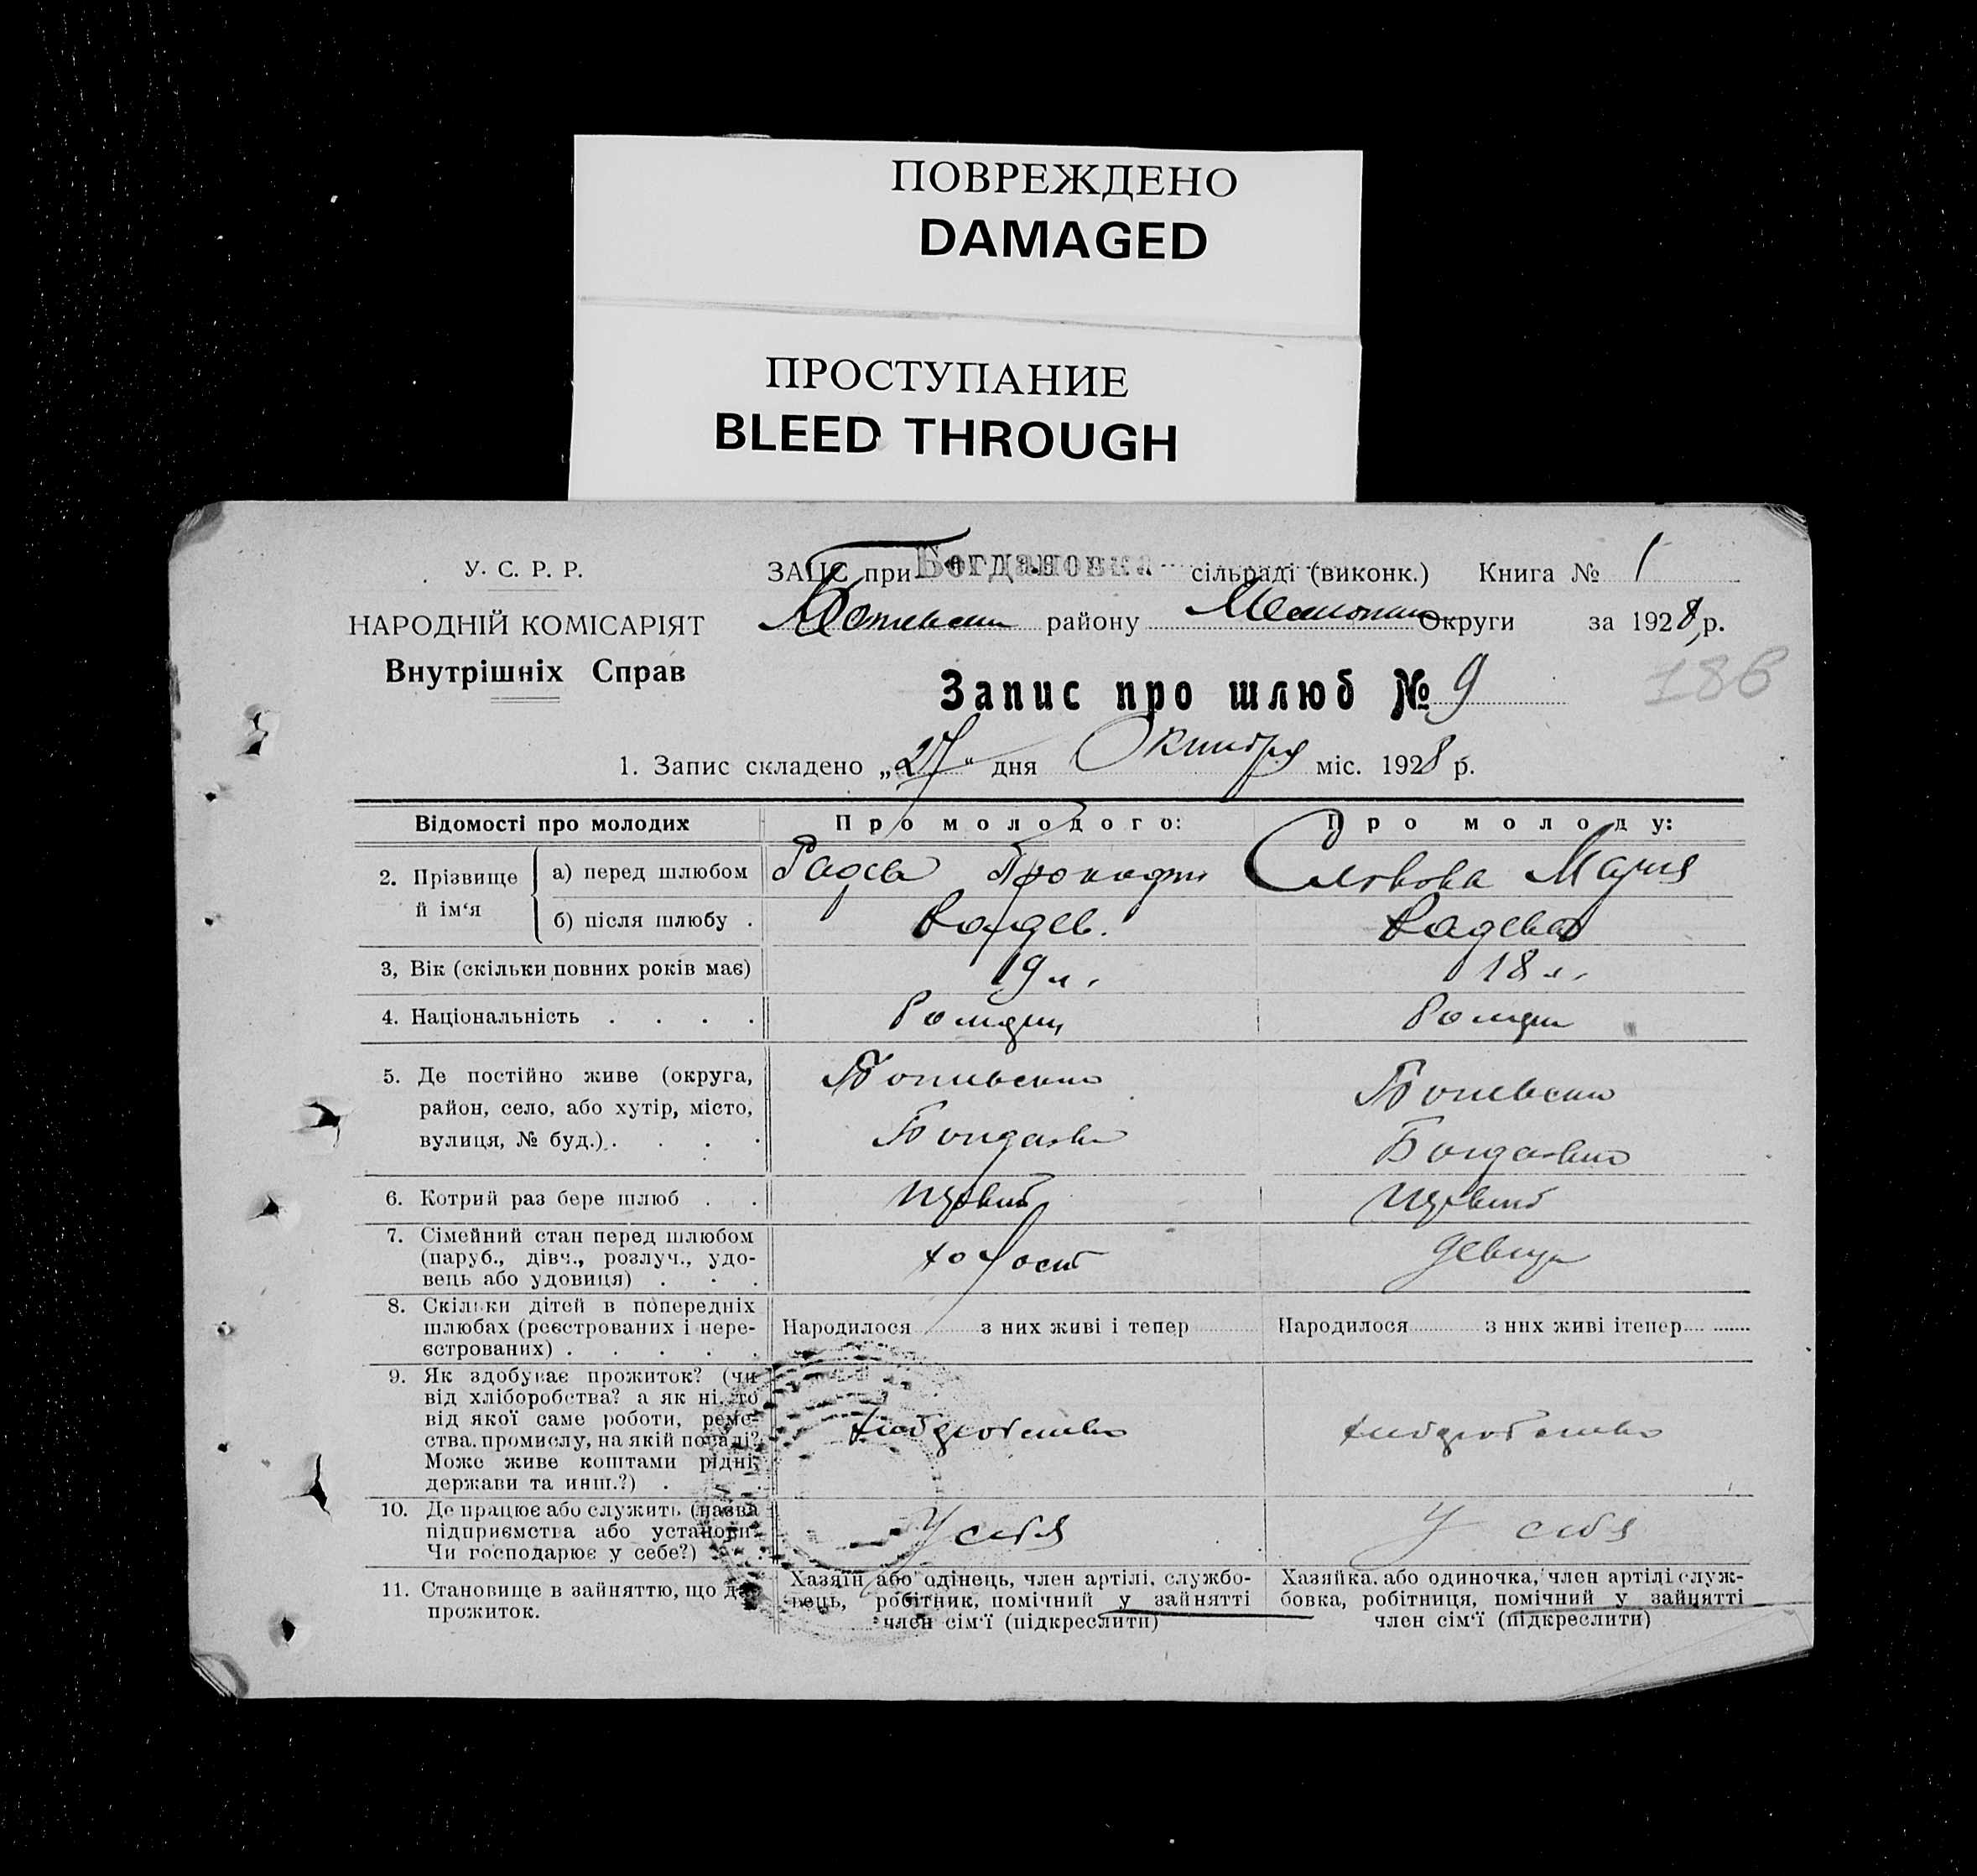 ПОВРЕЖДЕНО
DAMAGED
ПРОСТУПАНИЕ
BLEED THROUGH
У. С. Р. Р.
НАРОДНІЙ КОМІСАРІЯТ
Внутрішніх Справ
ЗАЦС при Богдановка сільраді (виконк.) Книга № 1
району Округи за 1928 р.
Запис про шлюб № 9
186
1. Запис складено „27“ дня Октября міс. 1928 р.
Відомості про молодих Про молодого: Про молоду:
2. Прізвище й ім‘я а) перед шлюбом Радев Прокофи Слявова Мария
б) після шлюбу . Радев. Радева
3, Вік (скільки повних років має) 19 л. 18 л.
4. Національність . . . .
5. Де постійно живе (округа,
район, село, або хутір, місто,
вулиця, № буд.). . . .
6. Котрий раз бере шлюб . . первий первий
7. Сімейний стан перед шлюбом
(паруб., дівч., розлуч., удо-
вець або удовиця) . . . холост девица
8. Скільки дітей в попередніх
шлюбах (реєстрованих і нере-
єстрованих) . . . . .
Народилося з них живі і тепер Народилося з них живі ітепер
9. Як здобуває прожиток? (чи
від хліборобства? а як ні, то
від якої саме роботи, реме-
ства, промислу, на якій посаді?
Може живе коштами рідні,
держави та инш.?) .
10. Де працює або служить (назва
підприємства або установи
Чи господарює у себе?)
У себя У себя
11. Становище в зайняттю, що дає
прожиток.
Хазяїн або одінець, член артілі, службо-
вець, робітник, помічний у зайнятті
член сім‘ї (підкреслити)
Хазяйка, або одиночка, член артілі служ-
бовка, робітниця, помічний у зайнятті
член сім‘ї (підкреслити)